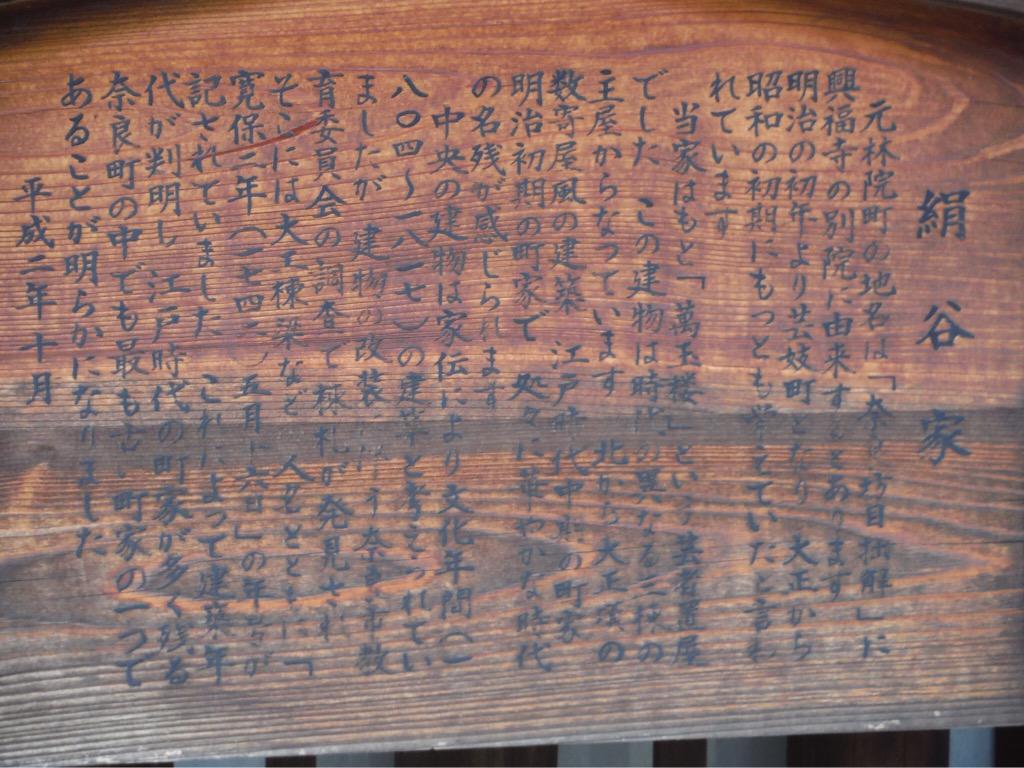 絹谷家
元林院町の地名は「奈良坊目拙解」に
興福寺の別院に由来するとあります
明治の初年より芸妓町となり 大正から
昭和の初期にもっとも栄えていたと言わ
れています
当家はもと「萬玉楼」という芸者置屋
でした この建物は時代の異なる三棟の
主屋からなっています 北から大正度の
数寄屋風の建築 江戸時代中期の町家
明治初期の町家で 処々に華やかな時代
の名残が感じられます
中央の建物は家伝により文化年間(一
八〇四〜一八一七)の建築と考えられてい
ましたが 建物の改装に伴う奈良市教
育委員会の調査で棟札が発見され
そこには大工棟梁など 人名とともに「
寛保二年(一七四二)五月十六日」の年号が
記されていました これによって建築年
代が判明し 江戸時代の町家が多く残る
奈良町の中でも最も古い町家の一つで
あることが明らかになりました
平成二年十月